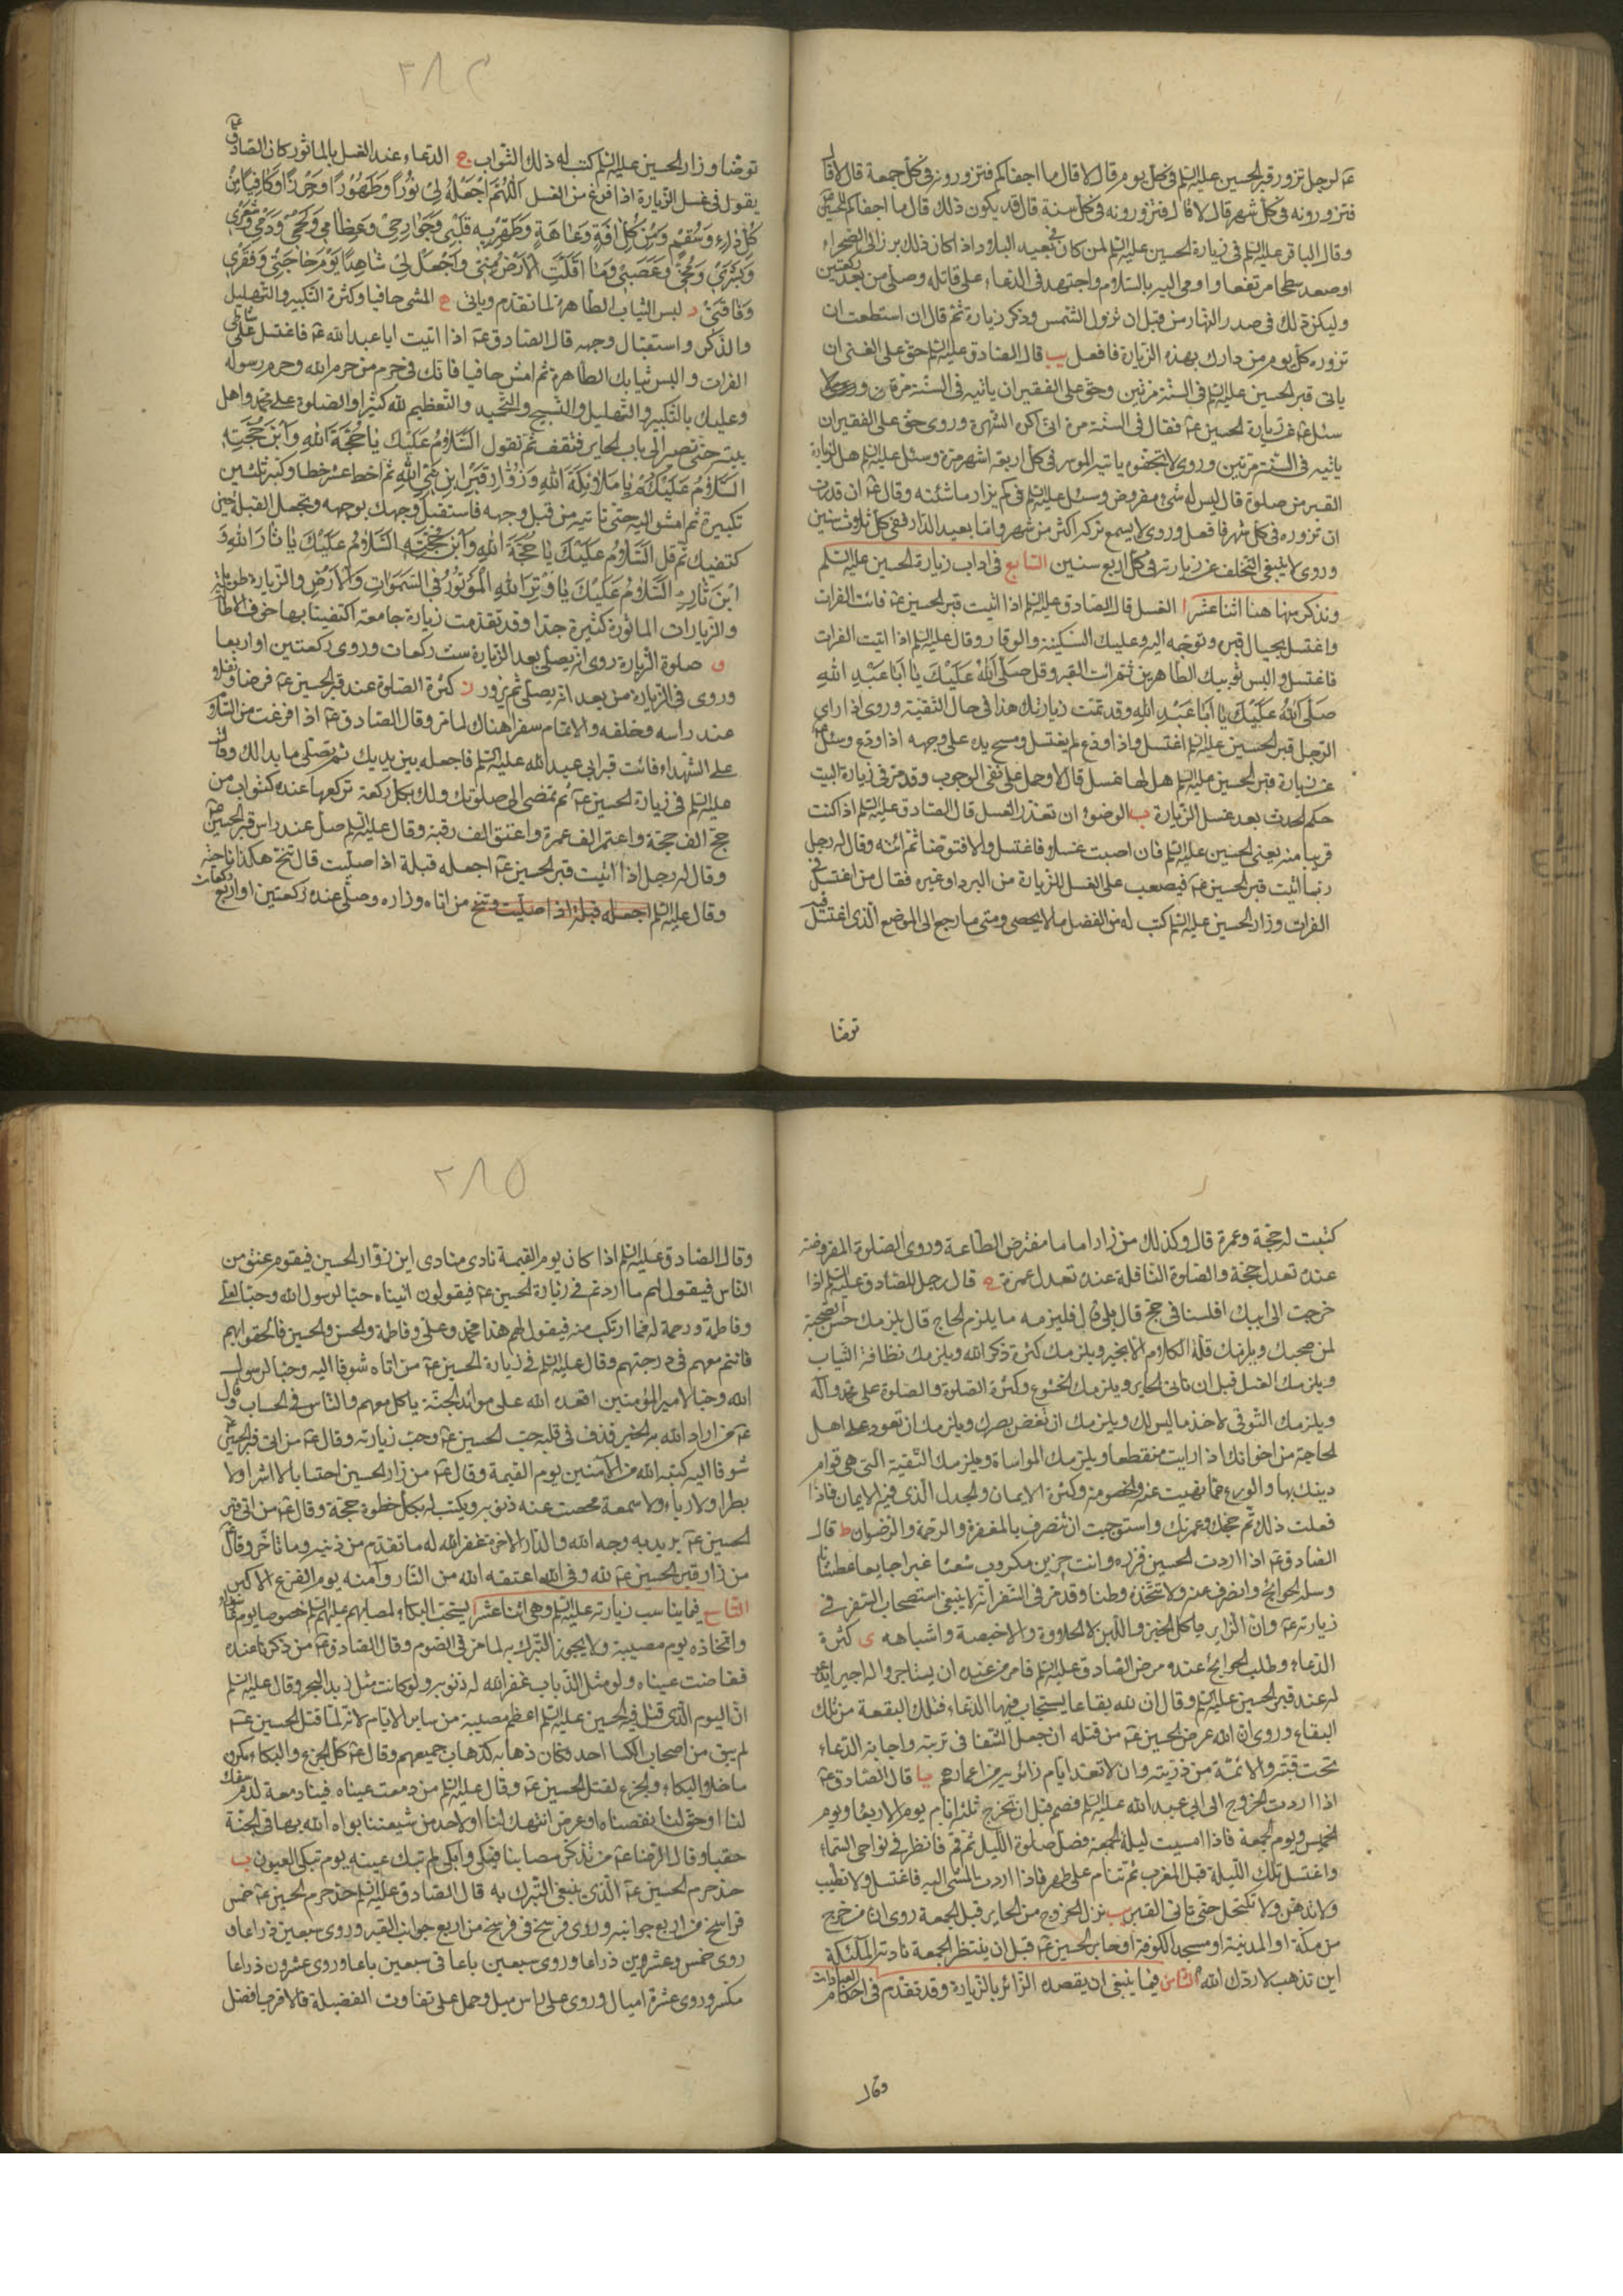 عه لرجل تزور قبر الحسين عليه السلم فى كل يوم قال لا قال ما اجفاكم فتزورونه فى كل جمعة قال لا قال
فتزورونه فى كل شهر قال لا قال فتزورونه فى كل سنة قال قد يكون ذلك قال ما اجفاكم للحسين عه
وقال الباقر عليه السلم فى زيارة الحسين عليه السلم لمن كان فى بعيد البلاد اذا كان ذلك برز الى الصحراء
او صعد سطحا مرتفعا واومى اليه بالسلام واجتهد فى الدعاء على قاتله وصلى من بعد ركعتين
وليكن ذلك فى صدر النهار من قبل ان تزول الشمس وذكر زيارة ثم قال ان استطعت ان
تزوره كل يوم من دارك بهذه الزيارة فافعل يب قال الصادق عليه السلم حق على الغنى ان
ياتى قبر الحسين عليه السلم فى السنة مرتين وحق على الفقير ان ياتيه فى السنة مرة
سئل عه عن زيارة الحسين عه فقال فى السنة مرة انى اكره الشهرة وروى حق على الفقير ان
ياتيه فى السنة مرتين وروى لا تجفوه ياتيه الموسر فى كل اربعة اشهر مرة وسئل عليه السلم هل لزيارة
القبر من صلوة قال ليس له شئ مفروض وسئل عليه السلم فى كم يزار ما شئته وقال عه ان قدرت
ان تزوره فى كل شهر فافعل وروى لا يسع تركه اكثر من شهر واما بعيد الدار ففى كل ثلاث سنين
وروى لا ينبغى التخلف عن زيارته فى كل اربع سنين السابع فى اداب زيارة الحسين عليه السلم
ونذكر منها هنا اثنا عشر ا الغسل قال الصادق عليه السلم اذا اتيت قبر الحسين عه فائت الفرات
واغتسل بحيال قبره وتوجه اليه وعليك السكينة والوقار وقال عليه السلم اذا اتيت الفرات
فاغتسل والبس ثوبيك الطاهرين ثم ائت القبر وقل صَلَّى اللهُ عَلَيْكَ يَا اَبَا عَبْدِ اللهِ
صَلَّى اللهُ عَلَيْكَ يَا اَبَا عَبْدِ اللهِ وقد تمت زيارتك هذا فى حال التقية وروى اذا راى
الرجل قبر الحسين عليه السلم اغتسل واذا ودع لم يغتسل ومسح يده على وجهه اذا ودع وسئل عه
عن زيارة قبر الحسين عليه السلم هل لها غسل قال لا وحمل على نفى الوجوب وقد مر فى زيارة البيت
حكم الحدث بعد غسل الزيارة ب الوضوء ان تعذر الغسل قال الصادق عليه السلم اذا كنت
قريبا منه يعنى الحسين عليه السلم فان اصبت غسلا فاغتسل والا فتوضا ثم ائته وقال له رجل
ربما اتيت قبر الحسين عه فيصعب على الغسل للزيارة من البرد او غيره فقال من اغتسل فى
الفرات وزار الحسين عليه السلم كتب له من الفضل ما لا يحصى ومتى ما رجع الى الموضع الذى اغتسل فيه
توضا
٣٨٤
توضا وزار الحسين عليه السلم كتب له ذلك الثواب ج الدعاء عند الغسل بالماثور كان الصادق عه
يقول فى غسل الزيارة اذا فرغ من الغسل اَللّهُمَّ اجْعَلْهُ لِى نُورًا وَطَهُورًا وَحِرْزًا وَكَافِيًا مِنْ
كُلِّ دَاءٍ وَسُقْمٍ وَمِنْ كُلِّ افَةٍ وَعَاهَةٍ وَطَهِّرْ بِهِ قَلْبِى وَجَوَارِحِى وَعِظَامِى وَلَحْمِى وَدَمِى وَشَعْرِى
وَبَشَرِى وَمُخِّى وَعَصَبِى وَمَا اَقَلَّتِ الْاَرْضُ مِنِّى وَاجْعَلْ لِى شَاهِدًا يَوْمَ حَاجَتِى وَفَقْرِى
وَفَاقَتِى د لبس الثياب الطاهرة لما تقدم وياتى ه المشى حافيا وكثرة التكبير والتهليل
والذكر واستقبال وجهه قال الصادق عه اذا اتيت ابا عبد الله عه فاغتسل على شاطى
الفرات والبس ثيابك الطاهرة ثم امش حافيا فانك فى حرم من حرم الله وحرم رسوله
وعليك بالتكبير والتهليل والتسبيح والتحميد والتعظيم لله كثيرا والصلوة على محمد واهل
بيته حتى تصير الى باب الحاير فتقف ثم تقول اَلسَّلَامُ عَلَيْكَ يَا حُجَّةَ اللهِ وَابْنَ حُجَّتِهِ
اَلسَّلَامُ عَلَيْكُمْ يَا مَلَائِكَةَ اللهِ وَزُوَّارَ قَبْرِ ابْنِ نَبِىِّ اللهِ ثم اخط عشر خطا وكبر ثلثين
تكبيرة ثم امش اليه حتى تاتيه من قبل وجهه فاستقبل وجهك بوجهه وتجعل القبلة بين
كتفيك ثم قل اَلسَّلَامُ عَلَيْكَ يَا حُجَّةَ اللهِ وَابْنَ حُجَّتِهِ اَلسَّلَامُ عَلَيْكَ يَا ثَارَ اللهِ وَ
ابْنَ ثَارِهِ اَلسَّلَامُ عَلَيْكَ يَا وِتْرَ اللهِ الْمَوْتُورَ فِى السَّموَاتِ وَالْاَرْضِ والزيارة طويلة
والزيارات الماثورة كثيرة جدا وقد تقدمت زيارة جامعة اكتفينا بها خوف الاطالة
و صلوة الزيارة روى انه يصلى بعد الزيارة ست ركعات وروى ركعتين او اربعا
وروى فى الزيارة من بعد انه يصلى ثم يزور ز كثرة الصلوة عند قبر الحسين عه فرضا ونفلا
عند راسه وخلفه والاتمام سفرا هناك لما مر وقال الصادق عه اذا فرغت من السلام
على الشهداء فائت قبر ابى عبد الله عليه السلم فاجعله بين يديك ثم تصلى ما بدا لك وقال
عليه السلم فى زيارة الحسين عه ثم تمضى الى صلوتك ولك بكل ركعة تركعها عنده كثواب من
حج الف حجة واعتمر الف عمرة واعتق الف رقبة وقال عليه السلم صل عند راس قبر الحسين عه
وقال له رجل اذا اتيت قبر الحسين عه اجعله قبلة اذا صليت قال تنح هكذا ناحية
وقال عليه السلم اجعله قبلة اذا صليت وتنح من اتاه وزاره وصلى عنده ركعتين او اربع ركعات
كتبت له حجة وعمرة قال وكذلك من زار اماما مفترض الطاعة وروى الصلوة المفروضة
عنده تعدل حجة والصلوة النافلة عنده تعدل عمرة ح قال رجل للصادق عليه السلم اذا
خرجت الى ابيك افلسنا فى حج قال بلى قال فليزمه ما يلزم الحاج قال يلزمك حسن الصحبة
لمن صحبك ويلزمك قلة الكلام الا بخير ويلزمك كثرة ذكر الله ويلزمك نظافة الثياب
ويلزمك الغسل قبل ان تاتى الحاير ويلزمك الخشوع وكثرة الصلوة والصلوة على محمد وآله
ويلزمك التوقى لاخذ ما ليس لك ويلزمك ان تغض بصرك ويلزمك ان تعود على اهل
الحاجة من اخوانك اذا رايت منقطعا ويلزمك المواساة ويلزمك التقية التى هى قوام
دينك بها والورع عما نهيت عنه والخصومة وكثرة الايمان والجدل الذى فيه الايمان فاذا
فعلت ذلك تم حجك وعمرتك واستوجبت ان تنصرف بالمغفرة والرحمة والرضوان ط قال
الصادق عه اذا اردت الحسين فزره وانت حزين مكروب شعثا غبرا جايعا عطشانا
وسل الحوائج وانصرف عنه ولا تتخذه وطنا وقد مر فى السفر انه لا ينبغى استصحاب السفر فى
زيارته عه وان الزاير ياكل الخبز واللبن لا الحلاوة والاخبصة واشباهه ى كثرة
الدعاء وطلب الحوائج عنده ومرض الصادق عليه السلم فامر من عنده ان يستاجروا له اجيرا يدعو
له عند قبر الحسين عليه السلم وقال ان لله بقاعا يستجاب فيها الدعاء فتلك البقعة من تلك
البقاع وروى ان الله عوض الحسين عه من قتله ان جعل الشفا فى تربته واجابة الدعاء
تحت قبته والائمة من ذريته وان لا تعد ايام زائريه من اعمارهم يا قال الصادق عه
اذا اردت الخروج الى ابى عبد الله عليه السلم فصم قبل ان تخرج ثلثة ايام يوم الاربعا ويوم
الخميس ويوم الجمعة فاذا امسيت ليلة الجمعة فصل صلوة الليل ثم قم فانظر فى نواحى السماء
واغتسل تلك الليلة قبل المغرب ثم تنام على طهر فاذا اردت المشى اليه فاغتسل ولا تطيب
ولا تدهن ولا تكتحل حتى تاتى القبر يب ترك الخروج من الحاير قبل الجمعة روى ان من خرج
من مكة او المدينة او مسجد الكوفة او حاير الحسين عه قبل ان ينتظر الجمعة نادته الملئكة
اين تذهب لا ردك الله الثامن فيما ينبغى ان يقصده الزائر بالزيارة وقد تقدم فى احكام العبادات
وقال
٣٨٥
وقال الصادق عليه السلم اذا كان يوم القيمة نادى منادى اين زوار الحسين فيقوم عنق من
الناس فيقول لهم ما اردتم فى زيارة الحسين عه فيقولون اتيناه حبا لرسول الله وحبا لعلى
وفاطمة ورحمة له مما ارتكب منه فيقول لهم هذا محمد وعلى وفاطمة والحسن والحسين فالحقوا بهم
فانتم معهم فى درجتهم وقال عليه السلم فى زيارة الحسين عه من اتاه شوقا اليه وحبا لرسول
الله وحبا لامير المؤمنين اقعده الله على موائد الجنة ياكل معهم والناس فى الحساب وقال
عه من اراد الله به الخير قذف فى قلبه حب الحسين عه وحب زيارته وقال عه من اتى قبر الحسين عه
شوقا اليه كتبه الله من الآمنين يوم القيمة وقال عه من زار الحسين احتسابا لا اشرا ولا
بطرا ولا رياء ولا سمعة محصت عنه ذنوبه ويكتب له بكل خطوة حجة وقال عه من اتى قبر
الحسين عه يريد به وجه الله والدار الاخرة غفر الله له ما تقدم من ذنبه وما تاخر وقال عه
من زار قبر الحسين عه لله وفى الله اعتقه الله من النار وآمنه يوم الفزع الاكبر
التاسع فيما يناسب زيارته عليه السلم وهى اثنا عشر ا يستحب البكاء لمصابهم عليهم السلم خصوصا يوم عاشورا
واتخاذه يوم مصيبة ولا يجوز التبرك به لما مر فى الصوم وقال الصادق عه من ذكرنا عنده
ففاضت عيناه ولو مثل الذباب غفر الله له ذنوبه ولو كانت مثل زبد البحر وقال عليه السلم
ان اليوم الذى قتل فيه الحسين عليه السلم اعظم مصيبة من ساير الايام لانه لما قتل الحسين عه
لم يبق من اصحاب الكسا احد فكان ذهابه كذهاب جميعهم وقال عه كل الجزع والبكاء مكروه
ما خلا البكاء والجزع لقتل الحسين عه وقال عليه السلم من دمعت عيناه فينا دمعة لدم سفك
لنا او حق لنا نقصناه او عرض انتهك لنا او لاحد من شيعتنا بواه الله بها فى الجنة
حقبا وقال الرضا عه من تذكر مصابنا فبكى وابكى لم تبك عينه يوم تبكى العيون ب
حد حرم الحسين عه الذى ينبغى التبرك به قال الصادق عليه السلم حد حرم الحسين عه خمس
فراسخ من اربع جوانبه وروى فرسخ فى فرسخ من اربع جوانب القبر وروى سبعين ذراعا و
روى خمس وعشرون ذراعا وروى سبعين باعا فى سبعين باعا وروى عشرون ذراعا
مكسر وروى عشرة اميال وروى على راس ميل وحمل على تفاوت الفضيلة فالاقرب افضل